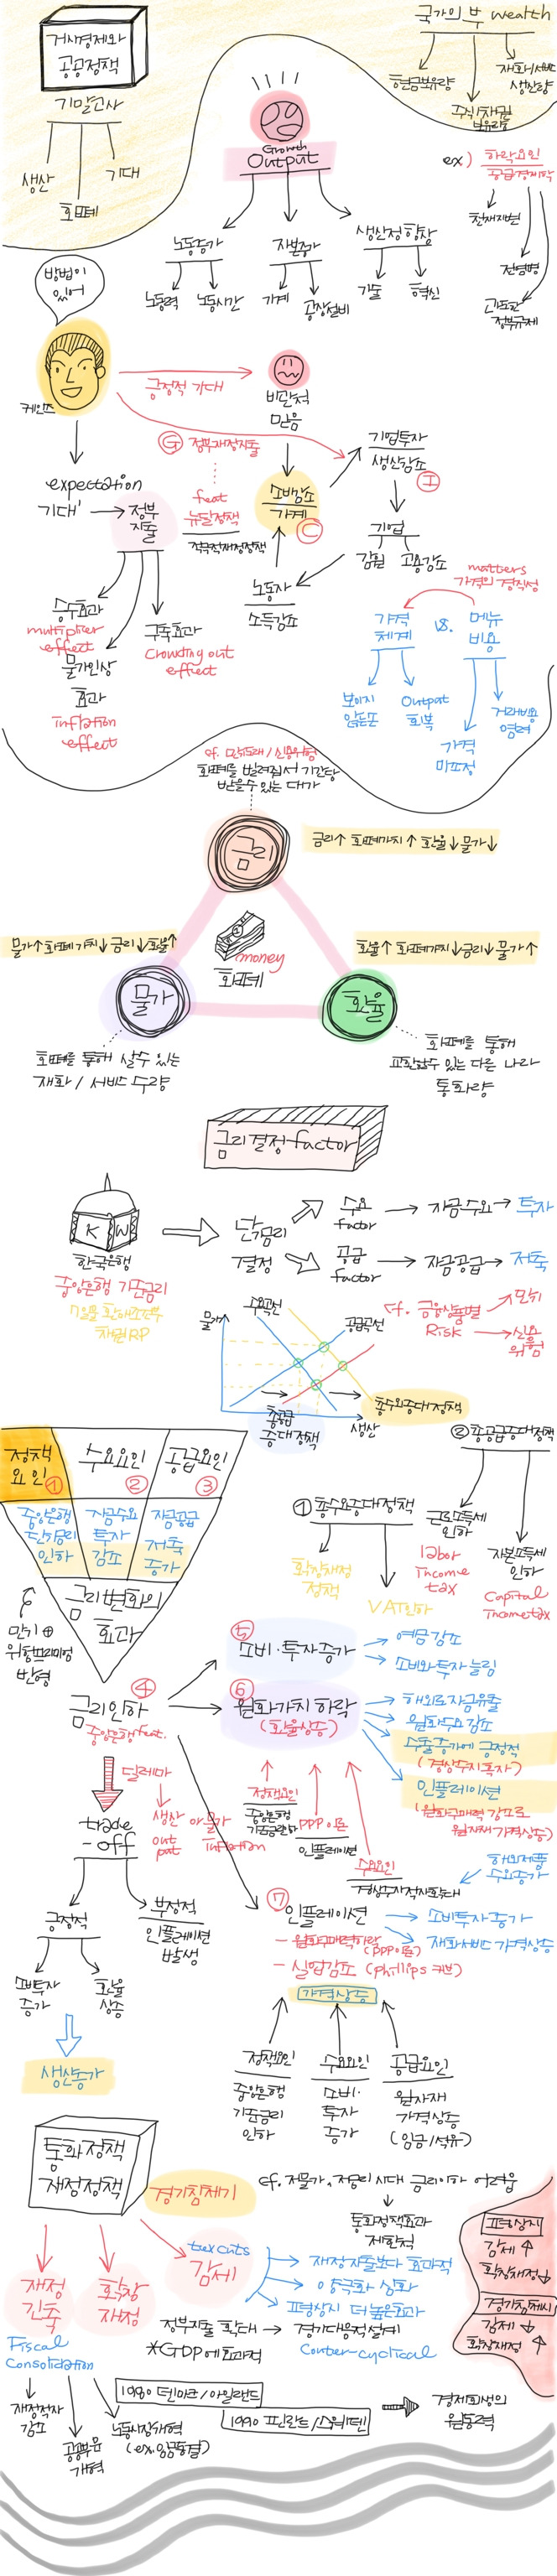 거시경제와
공공정책
기말고사
생산
화폐
기대
국가의 부 wealth
현금보유량
주식/채권
보유량
재화/서비스
생산량
Growth
Output
ex) 하락요인
공급경제학
천재지변
전염병
과도한
정부규제
노동증가
노동력
노동시간
자본증가
기계
공장설비
생산성 향상
기술
혁신
방법이
있어
케인즈
긍정적 기대
비관적
믿음
G 정부재정지출
기업투자
생산감소
I
expectation
기대
정부
지출
feat
뉴딜정책
적극적재정정책
소비감소
가계
C
기업
감원
고용감소
노동자
소득감소
승수효과
multiplier
effect
물가인상
효과
inflation
effect
구축효과
Crowding out
effect
matters
가격의 경직성
가격
체계
vs.
메뉴
비용
보이지
않는손
Output
회복
가격
미조정
거래비용
염려
cf. 만기도래/신용위험
화폐를 빌려줘서 기간당
받을수 있는 대가
금리
금리↑ 화폐가치↑ 환율↓ 물가↓
물가↑ 화폐가치↓ 금리↓ 환율↑
money
화폐
환율↑ 화폐가치↓ 금리↓ 물가↑
물가
환율
화폐를 통해 살수 있는
재화 / 서비스 수량
화폐를 통해
교환할수 있는 다른 나라
통화량
금리결정 factor
K W
한국은행
중앙은행 기준금리
7일물 환매조건부
채권RP
단기금리
결정
수요
factor
자금수요
투자
공급
factor
자금공급
저축
물가
수요곡선
공급곡선
cf. 금융상품별
Risk
만기
신용
위험
총공급
증대정책
생산
총수요증대정책
정책
요인 ①
수요요인
②
공급요인
③
중앙은행
단기금리
인하
자금수요
투자
감소
자금공급
저축
증가
금리변화의
효과
만기 ⊕
위험프리미엄
반영
① 총수요증대정책
확장재정
정책
VAT인하
② 총공급증대정책
근로소득세
인하
labor
income
tax
자본소득세
인하
Capital
income tax
④
금리인하
중앙은행 feat.
⑤
소비·투자증가
예금 감소
소비와 투자 늘림
⑥
원화가치 하락
(환율상승)
해외로 자금유출
원화수요 감소
수출증가에 긍정적
(경상수지흑자)
인플레이션
(원화구매력 감소로
원자재 가격상승)
딜레마
생산 or 물가
output inflation
trade
-off
긍정적
소비투자
증가
환율
상승
부정적
인플레이션
발생
생산증가
정책요인
중앙은행
기준금리인하
PPP이론
인플레이션
수요요인
경상수지적자확대
해외제품
수요증가
⑦
인플레이션
- 원화구매력하락 (PPP이론)
- 실업감소 (phillips 커브)
소비투자 증가
재화서비스 가격상승
가격상승
정책요인
중앙은행
기준금리
인하
수요요인
소비·
투자
증가
공급요인
원자재
가격상승
(임금/석유)
통화정책
재정정책
경기침체기
cf. 저물가, 저금리 시대 금리인하 어려움
통화정책효과
제한적
재정
긴축
Fiscal
Consolidation
확장
재정
tax cuts
감세
재정지출보다 효과적
양극화 심화
평상시 더 높은효과
정부지출 확대 → 경기대응적설계
*GDP에 효과적
Counter-cyclical
평상시
감세 ↑
확장재정↓
경기침체시
감세 ↓
확장재정 ↑
재정적자
감소
공공부문
개혁
노동시장개혁
(ex.임금동결)
1980 덴마크/아일랜드
1990 핀란드/스웨덴
경제회생의
원동력